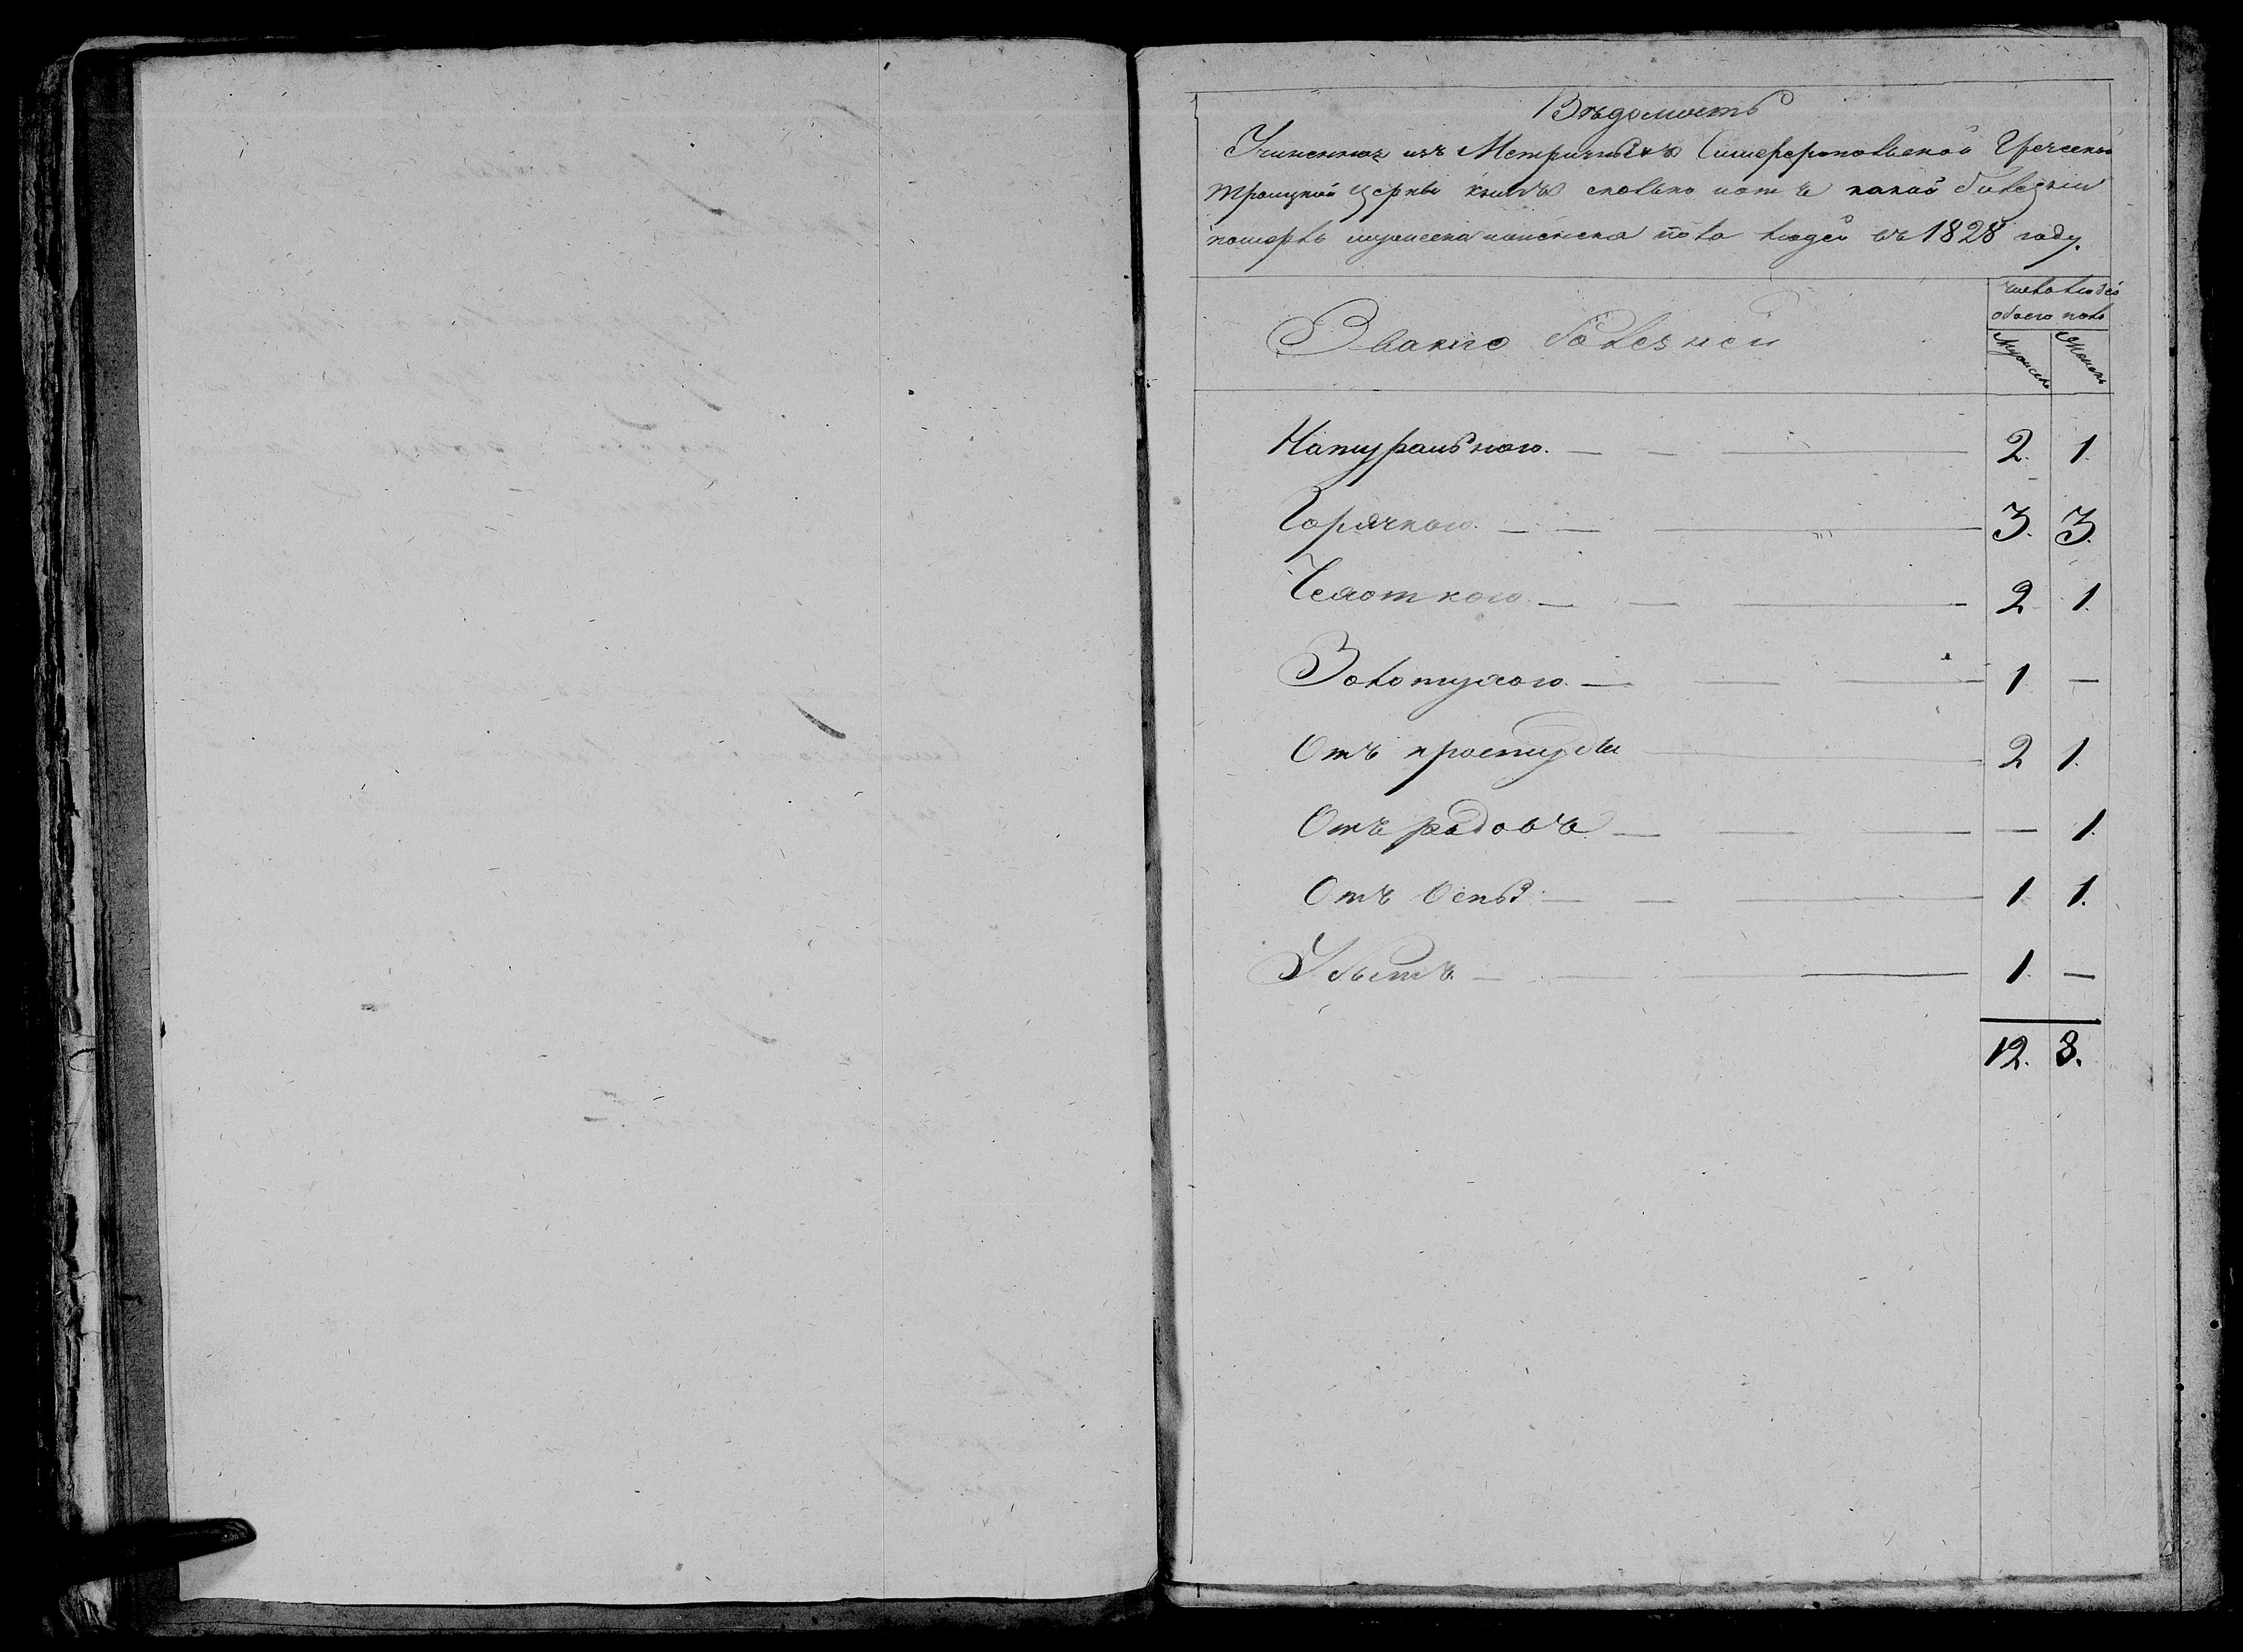 Вѣдомость
Учиненная изъ Метричныхъ Симферопольской Греческой
троицкой церкви книгъ сколько и отъ какой болезни
померло мужеска и женска пола людей въ 1828 году.
Звание болезней
число людей
обоего пола
Мужеска
Женска
Натуральною. — — — 2. 1.
Горячкою. — — — 3. 3.
Чехоткою. — — — 2 1.
Золотухою. — — — 1 —
Отъ простуды — 2 1.
Отъ родовъ — — — — 1.
Отъ Оспы. — — — 1 1.
Убитъ. — — — 1. —
12. 8.